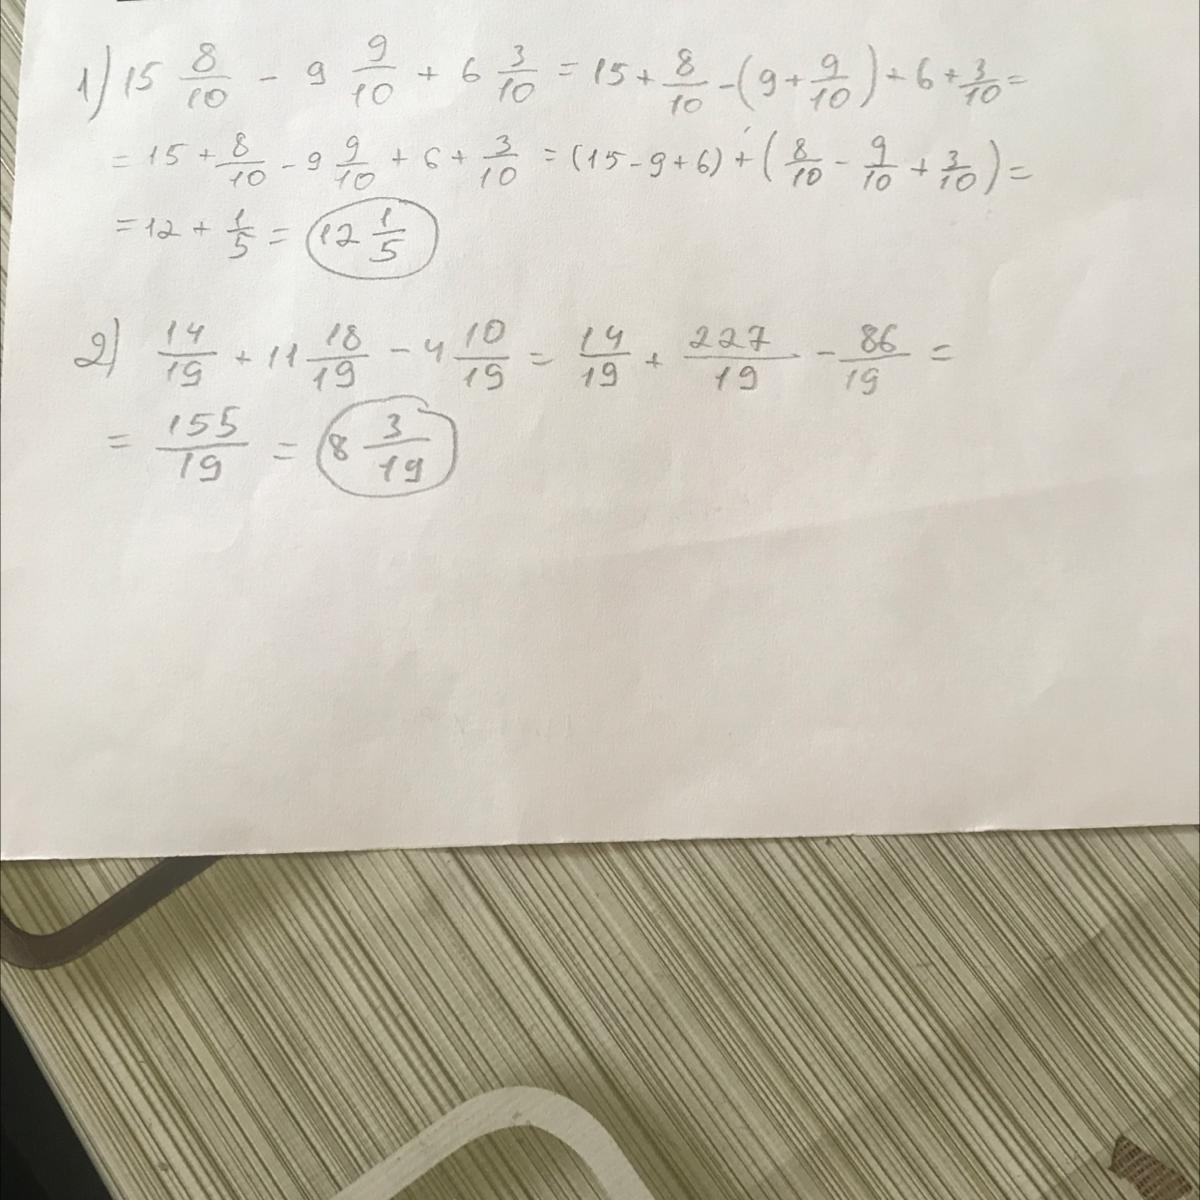 1) 15 8/10 - 9 9/10 + 6 3/10 = 15 + 8/10 - (9 + 9/10) + 6 + 3/10 =
= 15 + 8/10 - 9 9/10 + 6 + 3/10 = (15 - 9 + 6) + (8/10 - 9/10 + 3/10) =
= 12 + 1/5 = 12 1/5
2) 14/19 + 11 18/19 - 4 10/19 = 14/19 + 227/19 - 86/19 =
= 155/19 = 8 3/19